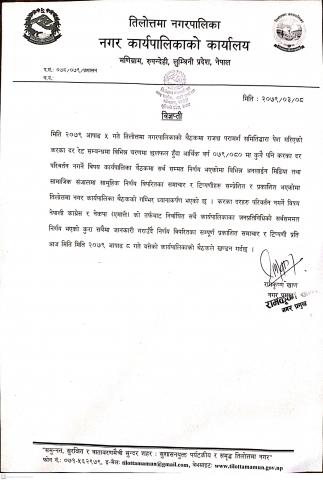 तिलोत्तमा नगरपालिका
नगर कार्यपालिकाको कार्यालय
मणिग्राम, रुपन्देही, लुम्बिनी प्रदेश, नेपाल
प.सं.: ०७८/०७९/प्रशासन
च.नं.:
मिति : २०७९/०३/०८
विज्ञप्ती
मिति २०७९ आषाढ ५ गते तिलोत्तमा नगरपालिकाको बैठकमा राजश्व परामर्श समितिद्वारा पेश गरिएको
करका दर रेट सम्बन्धमा विभिन्न चरणमा छलफल हुँदा आर्थिक वर्ष ०७९/०८० मा कुनै पनि करका दर
परिवर्तन नगर्ने विषय कार्यपालिका बैठकमा सर्व सम्मत निर्णय भएकोमा विभिन्न अनलाईन मिडिया तथा
सामाजिक संजालमा सामुहिक निर्णय विपरितका समाचार र टिप्पणीहरु सम्प्रेषित र प्रकाशित भएकोमा
तिलोत्तमा नगर कार्यपालिका बैठकको गम्भिर ध्यानाकर्षण भएको छ । करका दरहरु परिवर्तन नगर्ने विषय
नेपाली काँग्रेस र नेकपा (एमाले) को तर्फबाट निर्वाचित सबै कार्यपालिकाका जनप्रतिनिधिको सर्वसम्मत
निर्णय भएको कुरा सबैमा जानकारी गराउँदै निर्णय विपरितका सम्पूर्ण प्रकाशित समाचार र टिप्पणी प्रति
आज मिति मिति २०७९ आषाढ ८ गते बसेको कार्यपालिकाको बैठकले खण्डन गर्दछ ।
रामकृष्ण खाण
नगर प्रमुख
रामकृष्ण खाण
नगर प्रमुख
"समुन्नत, सुरक्षित र वातावरणमैत्री सुन्दर शहर : सुशासनयुक्त पर्यटकीय र समृद्ध तिलोत्तमा नगर"
फोन नं.: ०७१-५६२९७९, इ-मेल: tilottamamun@gmail.com, वेबसाइट: www.tilottamamun.gov.np